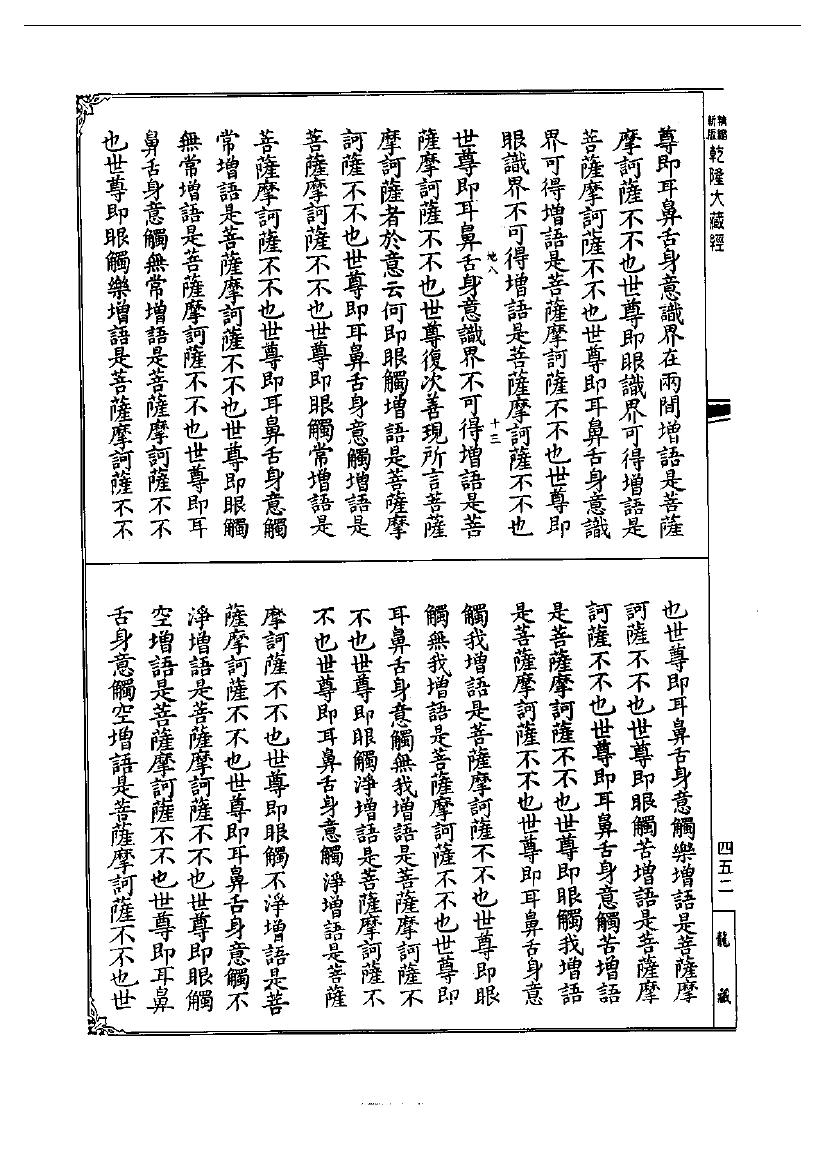 新版
精縮
乾隆大藏經
尊即耳鼻舌身意識界在兩間增語是菩薩
摩訶薩不不也世尊即眼識界可得增語是
菩薩摩訶薩不不也世尊即耳鼻舌身意識
界可得增語是菩薩摩訶薩不不也世尊即
眼識界不可得增語是菩薩摩訶薩不不也
地八
十三
世尊即耳鼻舌身意識界不可得增語是菩
薩摩訶薩不不也世尊復次善現所言菩薩
摩訶薩者於意云何即眼觸增語是菩薩摩
訶薩不不也世尊即耳鼻舌身意觸增語是
菩薩摩訶薩不不也世尊即眼觸常增語是
菩薩摩訶薩不不也世尊即耳鼻舌身意觸
常增語是菩薩摩訶薩不不也世尊即眼觸
無常增語是菩薩摩訶薩不不也世尊即耳
鼻舌身意觸無常增語是菩薩摩訶薩不不
也世尊即眼觸樂增語是菩薩摩訶薩不不
也世尊即耳鼻舌身意觸樂增語是菩薩摩
訶薩不不也世尊即眼觸苦增語是菩薩摩
訶薩不不也世尊即耳鼻舌身意觸苦增語
是菩薩摩訶薩不不也世尊即眼觸我增語
是菩薩摩訶薩不不也世尊即耳鼻舌身意
觸我增語是菩薩摩訶薩不不也世尊即眼
觸無我增語是菩薩摩訶薩不不也世尊即
耳鼻舌身意觸無我增語是菩薩摩訶薩不
不也世尊即眼觸淨增語是菩薩摩訶薩不
不也世尊即耳鼻舌身意觸淨增語是菩薩
摩訶薩不不也世尊即眼觸不淨增語是菩
薩摩訶薩不不也世尊即耳鼻舌身意觸不
淨增語是菩薩摩訶薩不不也世尊即眼觸
空增語是菩薩摩訶薩不不也世尊即耳鼻
舌身意觸空增語是菩薩摩訶薩不不也世
四五二
龍藏